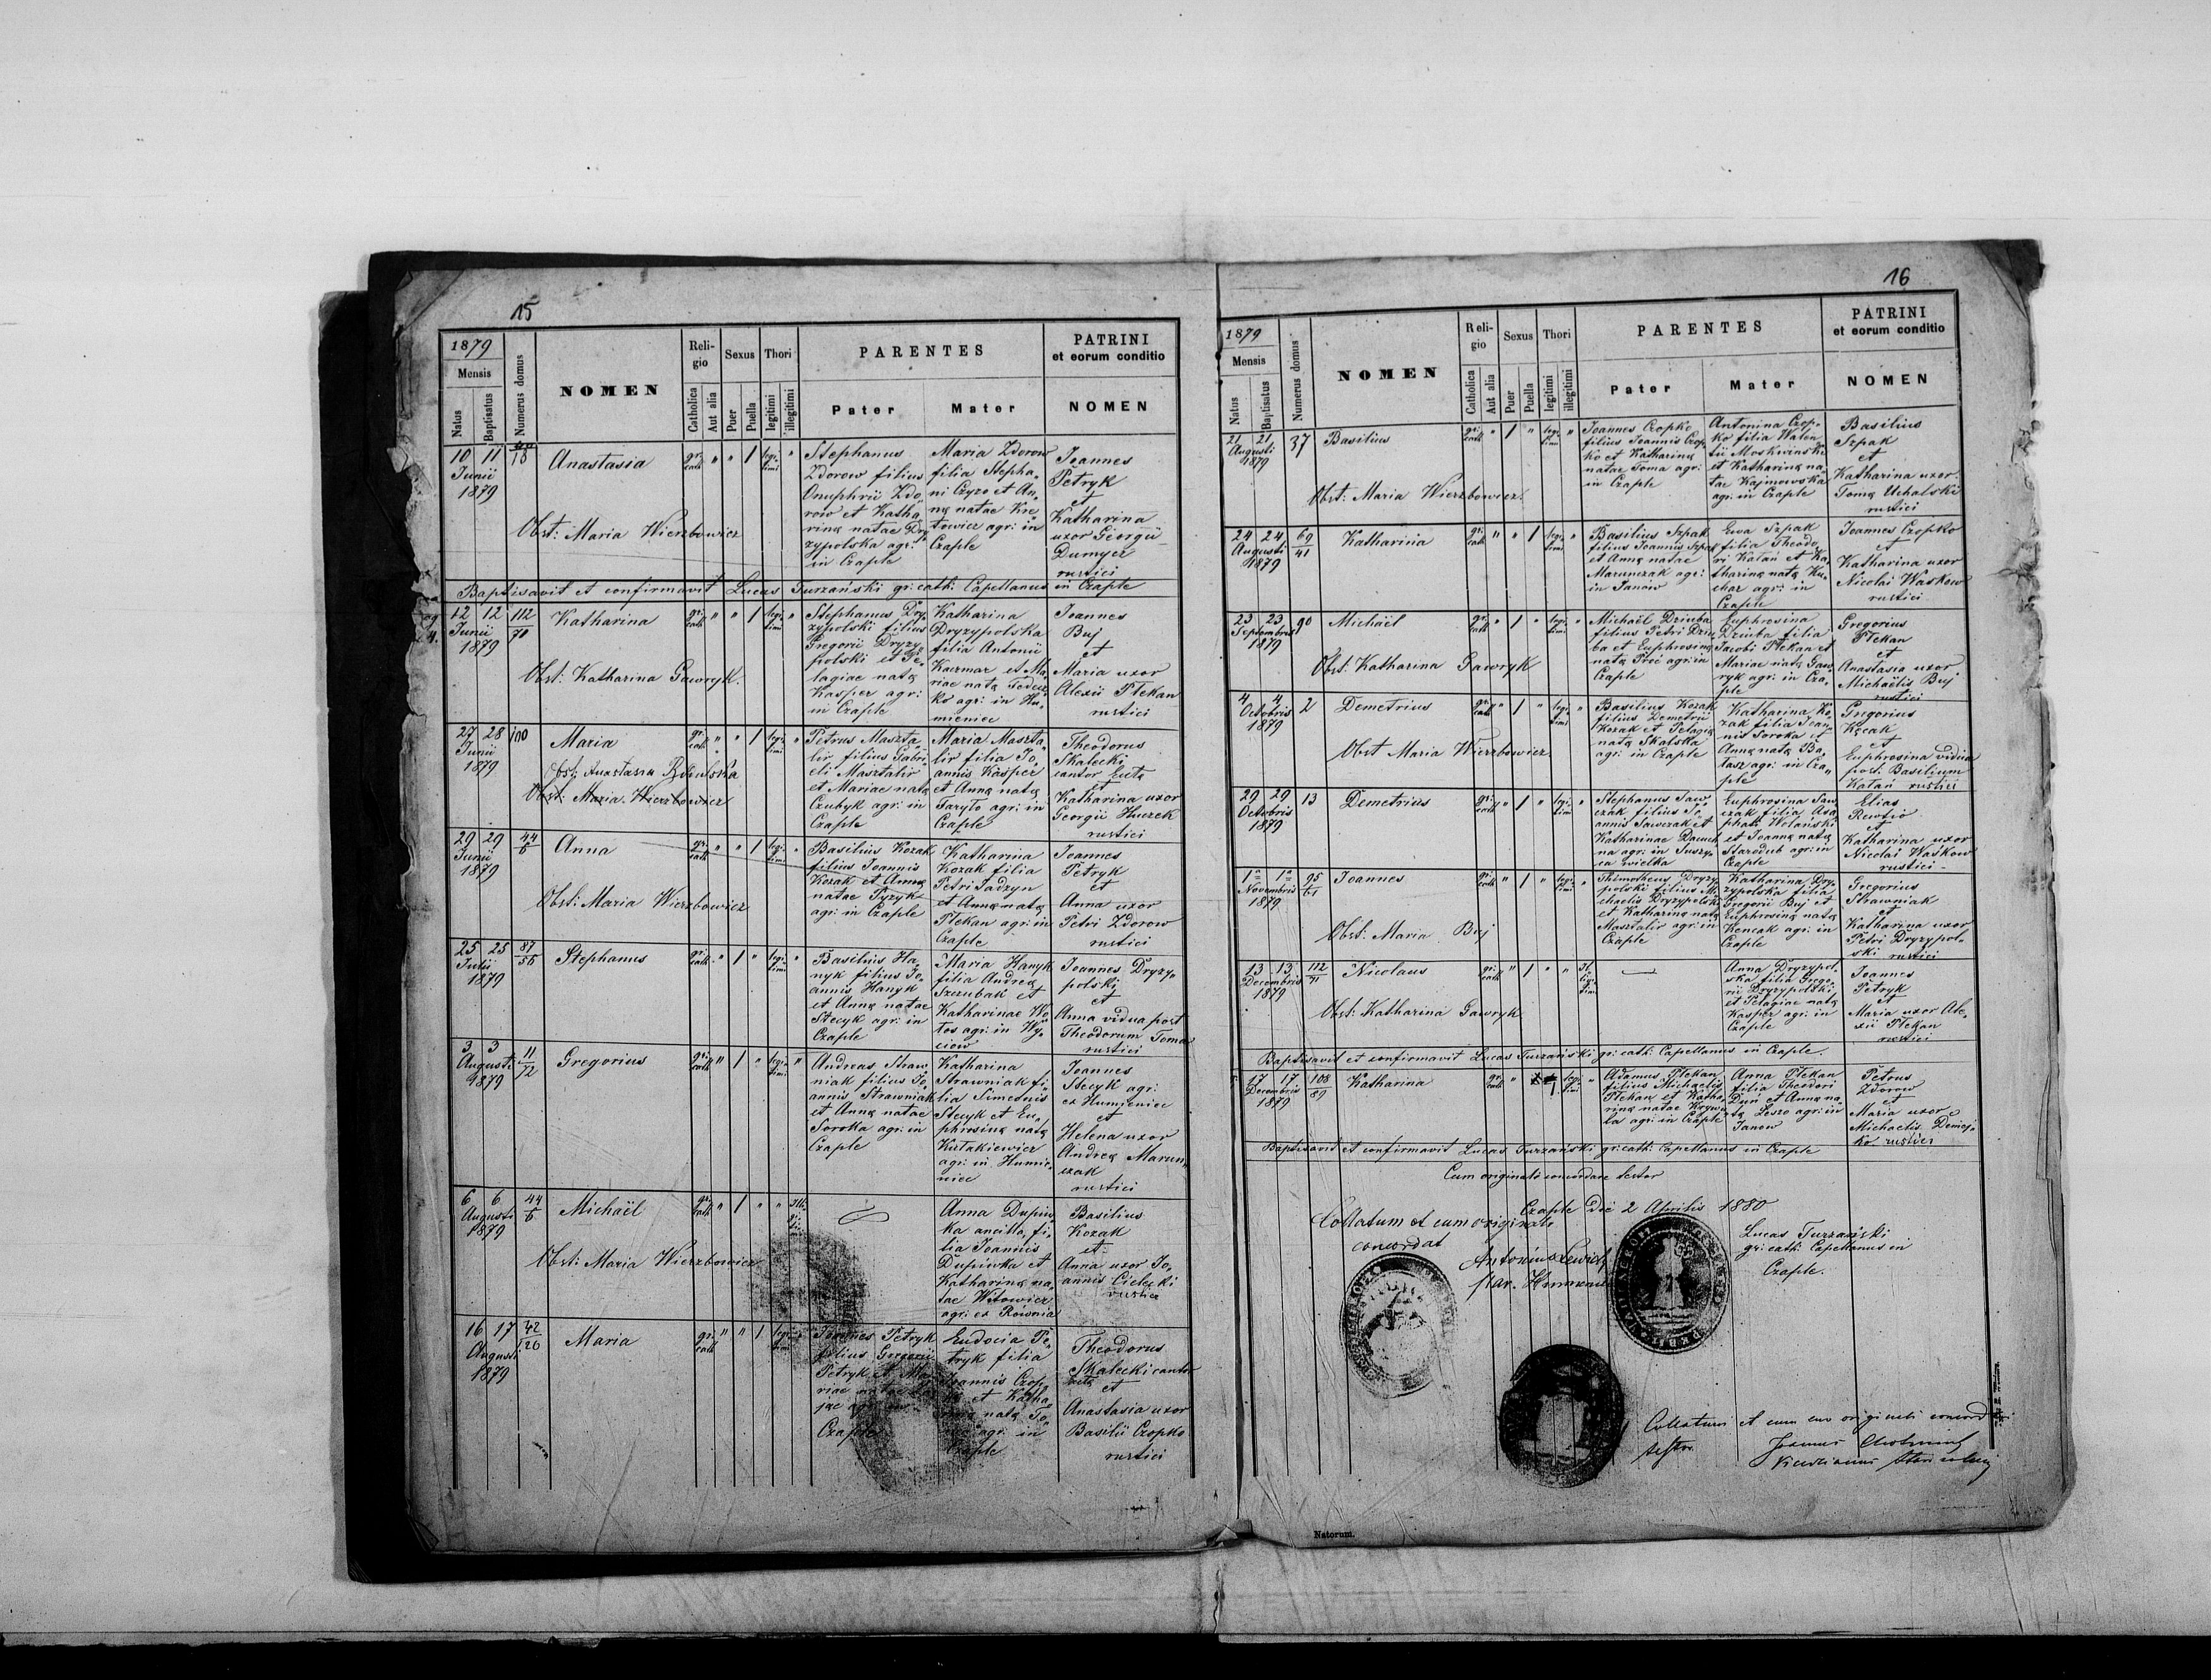 15
1879
Mensis
Natus
Baptisatus
Numerus domus
NOMEN
Religio
Catholica
Aut alia
Sexus
Puer
Puella
Thori
legitimi
illegitimi
PARENTES
Pater
Mater
PATRINI
et eorum conditio
NOMEN
10 11
Junii
1879
18
Anastasia
Obst: Maria Wierzbowicz
gr: cath
" " 1
legitimi "
Stephanus
Zdorow filius
Onuphrii Zdo„
row et Katha„
rinę natae Dry„
zypolska agr:
in Czaple
Maria Zdorow
filia Stepha„
ni Czyzo et An„
nę natae Kre„
towicz agr: in
Czaple
Joannes
Petryk
et
Katharina
uxor Georgii
Dumycz
rustici
Baptisavit et confirmavit Lucas Turzański gr: cath: Capellanus in Czaple
12 12
Junii
1879
112
70
Katharina
Obst: Katharina Gawryk.
gr: cath
" " 1
legitimi "
Stephanus Dry„
zypolski filius
Gregorii Dryzy„
polski et Pe„
lagiae natę
Kasper agr:
in Czaple
Katharina
Dryzypolska
filia Antonii
Kaczmar et Ma„
riae natę Fedez„
ko agr: in Hu„
mieniec
Joannes
Buj
et
Maria uxor
Alexii Płekan
rustici
27 28
Junii
1879
100
Maria
Obst: Anastasia
Obst: Maria Wierzbowicz
gr: cath
" " 1
legitimi "
Petrus Maszta„
lir filius Gabri„
eli Masztalir
et Mariae natę
Czubyk agr: in
Czaple
Maria Maszta„
lir filia Jo„
annis Kasper
et Annę natę
Faryło agr: in
Czaple
Theodorus
Skałecki
cantor
et
Katharina uxor
Georgii Huczek
rustici
29 29
Junii
1879
44
6
Anna
Obst: Maria Wierzbowicz
gr: cath
" " 1
legitimi "
Basilius Kozak
filius Joannis
Kozak et Annę
natae Pyzyk
agr: in Czaple
Katharina
Kozak filia
Petri Sadzyn
et Annę natę
Płekan agr: in
Czaple
Joannes
Petryk
et
Anna uxor
Petri Zdorow
rustici
25 25
Julii
1879
87
56
Stephanus
gr: cath
" 1 "
legitimi "
Basilius Ha„
nyk filius Jo„
annis Hanyk
et Annę natae
Stecyk agr: in
Czaple
Maria Hanyk
filia Andreę
Szczubak et
Katharinae Wo„
łos agr: in Wy„
ciow
Joannes Dryzy„
polski
et
Anna vidua post
Theodorum Toma
rustici
3 3
Augusti
1879
11
72
Gregorius
gr: cath
" 1 "
legitimi "
Andreas Straw„
niak filius Jo„
annis Strawniak
et Annę natae
Soroka agr: in
Czaple
Katharina
Strawniak fi„
lia Simeonis
Stecyk et Eu„
phrosinę natę
Kułakiewicz
agr: in Humie„
niec
Joannes
Stecyk agr:
ex Humieniec
et
Helena uxor
Andreę Marun„
czak
rustici
6 6
Augusti
1879
44
6
Michaël
Obst: Maria Wierzbowicz
gr: cath
" 1 " "
Illegitimi
Anna Dupiw„
ka ancilla, fi„
lia Joannis
Dupiwka et
Katharinę na„
tae Witowicz
agr: ex Równia
Basilius
Kozak
et
Anna uxor Jo„
annis Cielecki
rustici
16 17
Augusti
1879
42
120
Maria
gr: cath
" " 1
Joannes Petryk
filius Gregorii
Petryk et Ma„
riae natae
Czaple
Eudocia Pe„
tryk filia
Joannis Czop„
ko et Katha„
rinę natę To„
agr: in
Czaple
Theodorus
Skałecki cantor
et
Anastasia uxor
Basilii Czopko
rustici
16
1879
Mensis
Natus
Baptisatus
Numerus domus
NOMEN
Religio
Catholica
Aut alia
Sexus
Puer
Puella
Thori
legitimi
illegitimi
PARENTES
Pater
Mater
PATRINI
et eorum conditio
NOMEN
21 21
Augusti
1879
37
Basilius
Obst: Maria Wierzbowicz
gr: cath
" 1 "
legitimi "
Joannes Czopko
filius Joannis Czop„
ko et Katharinę
natae Toma agr:
in Czaple
Antonina Czop„
ko filia Walen„
tii Moskwinski
et Katharinę na„
tae Kajmowska
agr: in Czaple
Basilius
Szpak
et
Katharina uxor
Tomę Uchalski
rustici
24 24
Augusti
1879
69
41
Katharina
gr: cath
" " 1
legitimi "
Basilius Szpak
filius Joannis Szpak
et Annę natae
Marunczak agr:
in Janow
Ewa Szpak
filia Theodo„
ri Katan et Ka„
tharinę natę Ku„
char agr: in
Czaple
Joannes Czopko
et
Katharina uxor
Nicolai Waskow
rustici
23 23
Septembris
1879
90
Michaël
Obst: Katharina Gawryk
gr: cath
" 1 "
legitimi "
Michaël Dziuba
filius Petri Dziu„
ba et Euphrosinę
natę Proć agr: in
Czaple
Euphrosina
Dziuba filia
Jacobi Płekan et
Mariae natę Gaw„
ryk agr: in Cza„
ple
Gregorius
Płekan
et
Anastasia uxor
Michaëlis Buj
rustici
4 4
Octobris
1879
2
Demetrius
Obst Maria Wierzbowicz
gr: cath
" 1 "
legitimi "
Basilius Kozak
filius Demetrii
Kozak et Pelagię
natę Skalska
agr: in Czaple
Katharina Ko„
zak filia Joan„
nis Soroka et
Annę natę Ba„
łasz agr: in Cza„
ple
Gregorius
Kęcak
et
Euphrosina vidua
post Basilium
Katan rustici
29 29
Octobris
1879
13
Demetrius
gr: cath
" 1 "
legitimi "
Stephanus Saw„
czak filius Jo„
annis Sawczak et
Katharinae Dawch„
na agr: in Suszy„
ca wielka
Euphrosina Saw„
czak filia Asa„
phati Wolański
et Joannę natę
Starodub agr: in
Czaple
Elias
Rewtio
et
Katharina uxor
Nicolai Waskow
rustici
1a 1a
Novembris
1879
95
61
Joannes
Obst: Maria Buj
gr: cath
" 1 "
legitimi "
Thimotheus Dryzy„
polski filius Mi„
chaelis Dryzypolski
et Katharinę natę
Masztalir agr: in
Czaple
Katharina Dry„
zypolska filia
Gregorii Buj et
Euphrosinę natę
Kencak agr: in
Czaple
Gregorius
Strawniak
et
Katharina uxor
Petri Dryzypol„
ski rustici
13 13
Decembris
1879
112
71
Nicolaus
Obst: Katharina Gawryk
gr: cath
" 1 " "
Illegitimi
Anna Dryzypol„
ska filia Grego„
rii Dryzypolski
et Pelagiae natę
Kasper agr: in
Czaple
Joannes
Petryk
et
Maria uxor Ale„
xii Płekan
rustici
Baptisavit et confirmavit Lucas Turzański gr: cath: Capellanus in Czaple.
17 17
Decembris
1879
108
89
Katharina
gr: cath
legitimi "
Adamus Płekan
filius Michaelis
Płekan et Katha„
rinę natae Krywu„
la agr: in Czaple
Anna Płekan
filia Theodori
Duń et Annę na„
tę Leszo agr: in
Janow
Petrus
Zdorow
et
Maria uxor
Michaelis Demej„
ko rustici
Baptisavit et confirmavit Lucas Turzański gr: cath: Capellanus in Czaple
Cum originale concordare testor
Czaple die 2 Aprilis 1880
Lucas Turzański
gr: cath: Capellanus in
Czaple.
Collatum et cum originale
concordat
Antonius
par.
Collatum et cum suo originali
testor
Joannes
Natorum.